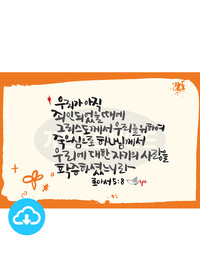 우리가 아직
죄인 되었을 때에
그리스도께서 우리를 위하여
죽으심으로 하나님께서
우리에 대한 자기의 사랑을
확증하셨느니라
로마서 5:8